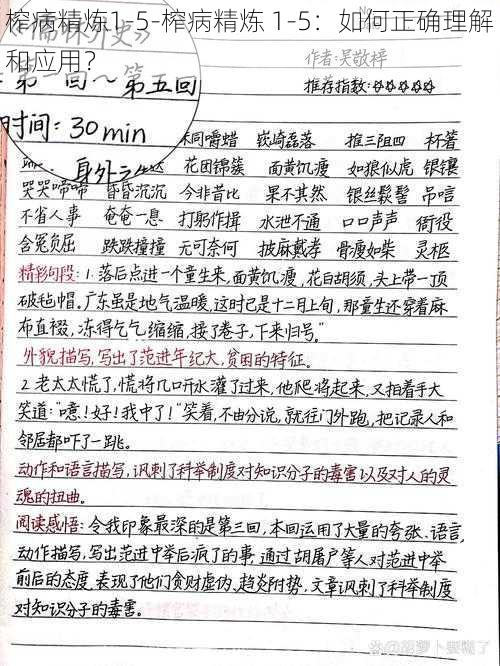 榨病精炼1-5-榨病精炼 1-5：如何正确理解
和应用？
作者:吴敬梓
第一回～第五回
推荐指数:☆☆☆☆☆
时间: 30min
味同嚼蜡 嵚崎磊落 推三阻四 杯箸
花团锦簇 面黄饥瘦 如狼似虎 银镶
哭哭啼啼 昏昏沉沉 今非昔比 果不其然 银丝鬏髻 吊唁
不省人事 奄奄一息 打躬作揖 水泄不通 口口声声 衙役
含冤负屈 跌跌撞撞 无可奈何 披麻戴孝 骨瘦如柴 灵柩
精彩句段: 1.落后点进一个童生来,面黄饥瘦,花白胡须,头上带一顶
破毡帽。广东虽是地气温暖,这时已是十二月上旬,那童生还穿着麻
布直裰,冻得乞乞缩缩,接了卷子,下来归号。"
外貌描写,写出了范进年纪大,贫困的特征。
2.老太太慌了,慌将几口开水灌了过来,他爬将起来,又拍着手大
笑道:"噫!好!我中了!"笑着,不由分说,就往门外跑,把记录人和
邻居都吓了一跳。
动作和语言描写,讽刺了科举制度对知识分子的毒害以及对人的灵
魂的扭曲。
阅读感悟: 令我印象最深的是第三回,本回运用了大量的夸张、语言,
动作描写,写出范进中举后疯了的事,通过胡屠户等人对范进中举
前后的态度,表现了他们贪财虚伪、趋炎附势,文章讽刺了科举制度
对知识分子的毒害。